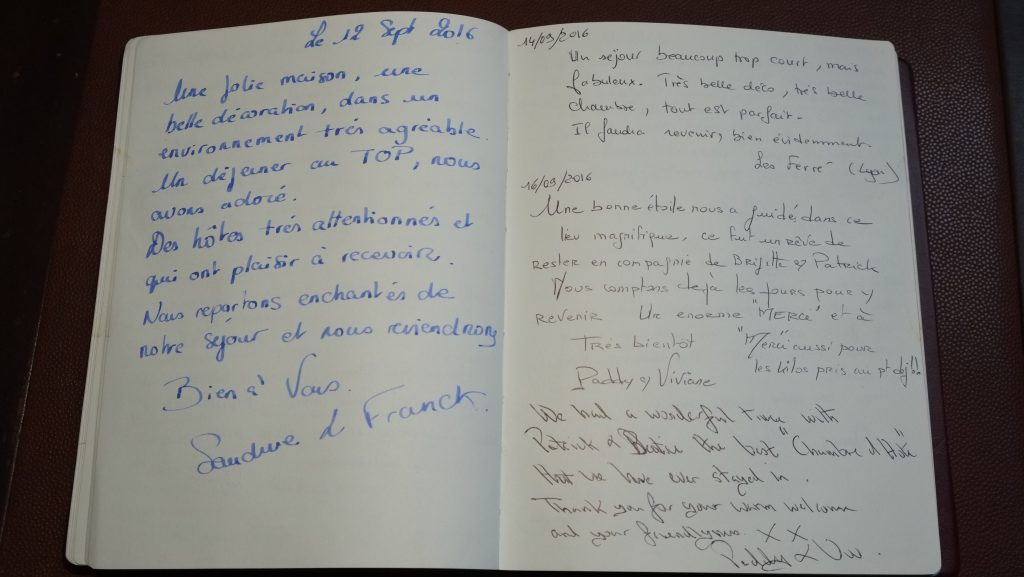 Le 12 Sept 2016
Une jolie maison, une
belle décoration, dans un
environnement trés agréable.
Un déjeuner au TOP, nous
avons adoré.
Des hôtes trés attentionnés et
qui ont plaisir à recevoir.
Nous repartons enchantés de
notre séjour et nous reviendrons
Bien à Vous.
Sandrine & Franck.
14/09/2016
Un séjour beaucoup trop court, mais
fabuleux. Très belle déco, très belle
chambre, tout est parfait.
Il faudra revenir, bien évidemment.
Les Ferré (Lyon)
16/09/2016
Une bonne étoile nous a guidé dans ce
lieu magnifique, ce fut un rêve de
rester en compagnie de Brigitte & Patrick
Nous comptons dejà les jours pour y
revenir Un enorme "MERCI" et à
Trés bientot "Merci" aussi pour
les kilos pris au pt dej!!
Paddy & Viviane
We had a wonderful time with
Patrick & the best "Chambre d'Hôte"
that we have ever stayed in.
Thank you for your warm welcome
and your friendlyness. X X
Paddy & Viv.